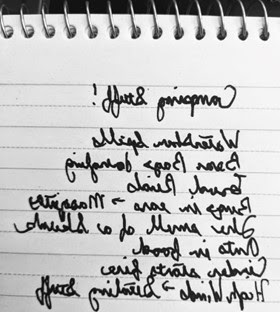 Camping Stuff!
Waterskiers spills
Bean Bags dancing
Travel Quick
Bugs in ears → Mosquitos
The smell of a skunk
Ants in food
Cinders starts fires
High Winds → Blowing Stuff